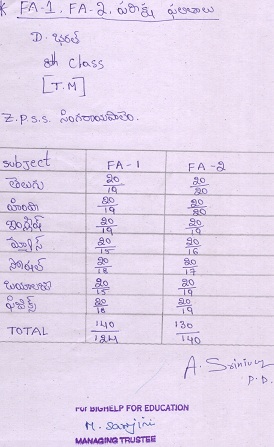 * FA-1, FA-2, పరీక్ష ఫలితాలు
D. భరత్
8th Class
[T.M]
Z.P.S.S. సింగరాయపాలెం.
subject FA-1 FA-2
తెలుగు 20/19 20/20
హిందీ 20/19 20/20
ఇంగ్లీష్ 20/19 20/19
మ్యాథ్స్ 20/15 20/16
సోషల్ 20/18 20/17
బయాలజీ 20/15 20/19
ఫిజిక్స్ 20/18 20/19
TOTAL 140/124 130/140
A. Srinivas
P.D.
For BIGHELP FOR EDUCATION
M. Sarojini
MANAGING TRUSTEE